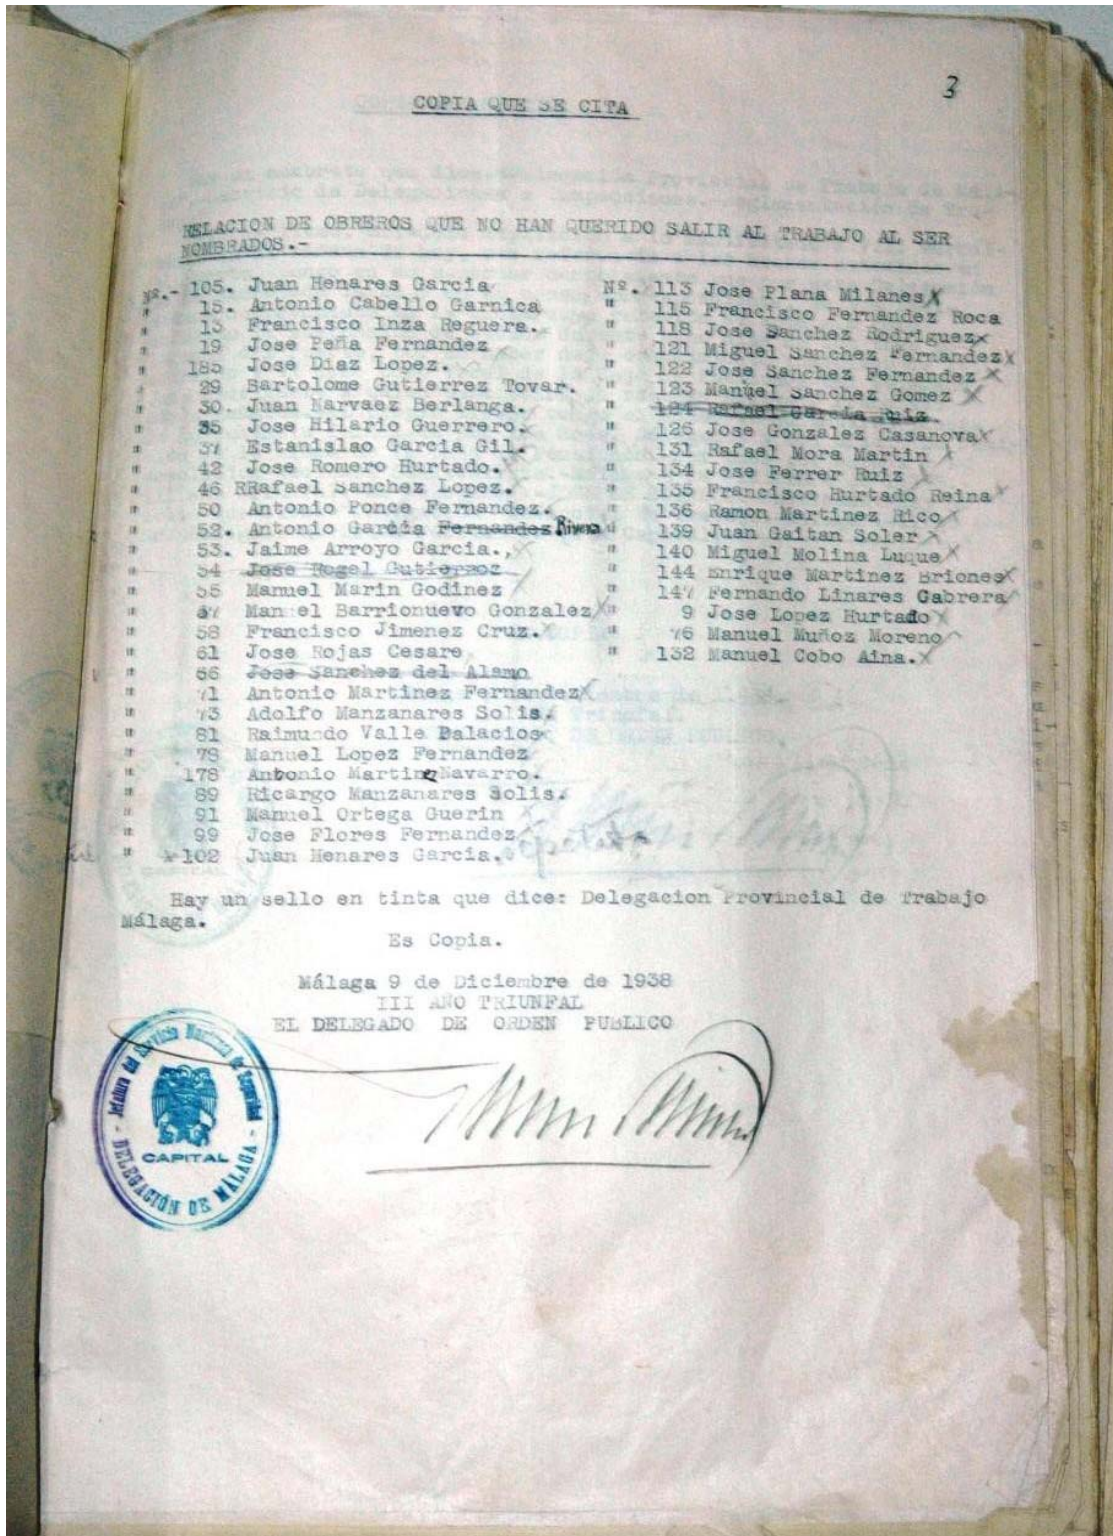 3
COPIA QUE SE CITA
RELACION DE OBREROS QUE NO HAN QUERIDO SALIR AL TRABAJO AL SER
NOMBRADOS.-
Nº.- 105. Juan Henares Garcia
" 15. Antonio Cabello Garnica
" 13 Francisco Inza Reguera.
" 19 Jose Peña Fernandez
" 185 Jose Diaz Lopez.
" 29 Bartolome Gutierrez Tovar.
" 30. Juan Narvaez Berlanga.
" 35 Jose Hilario Guerrero.
" 37 Estanislao Garcia Gil.
" 42 Jose Romero Hurtado.
" 46 RRafael Sanchez Lopez.
" 50 Antonio Ponce Fernandez.
" 52. Antonio Garcia Fernandez Rivera
" 53. Jaime Arroyo Garcia.,
" 54 Jose Rogel Gutierrez
" 55 Manuel Marin Godinez
" 57 Manuel Barrionuevo Gonzalez
" 58 Francisco Jimenez Cruz.
" 61 Jose Rojas Cesare
" 66 Jose Sanchez del Alamo
" 71 Antonio Martinez Fernandez
" 73 Adolfo Manzanares Solis.
" 81 Raimundo Valle Palacios
" 78 Manuel Lopez Fernandez
" 178 Antonio Martinez Navarro.
" 89 Ricargo Manzanares Solis.
" 91 Manuel Ortega Guerin
" 99 Jose Flores Fernandez
" 102 Juan Henares Garcia.
Nº. 113 Jose Plana Milanes X
" 115 Francisco Fernandez Roca
" 118 Jose Sanchez Rodriguez X
" 121 Miguel Sanchez Fernandez X
" 122 Jose Sanchez Fernandez X
" 123 Manuel Sanchez Gomez X
" 124 Rafael Garcia Ruiz
" 126 Jose Gonzalez Casanova X
" 131 Rafael Mora Martin X
" 134 Jose Ferrer Ruiz X
" 135 Francisco Hurtado Reina X
" 136 Ramon Martinez Rico X
" 139 Juan Gaitan Soler X
" 140 Miguel Molina Luque X
" 144 Enrique Martinez Briones X
" 147 Fernando Linares Cabrera
" 9 Jose Lopez Hurtado X
" 76 Manuel Muñoz Moreno
" 132 Manuel Cobo Aina. X
Hay un sello en tinta que dice: Delegacion Provincial de Trabajo
Málaga.
Es Copia.
Málaga 9 de Diciembre de 1938
III AÑO TRIUNFAL
EL DELEGADO DE ORDEN PUBLICO
Jefatura del Servicio Nacional de Seguridad
CAPITAL
- DELEGACIÓN DE MÁLAGA -